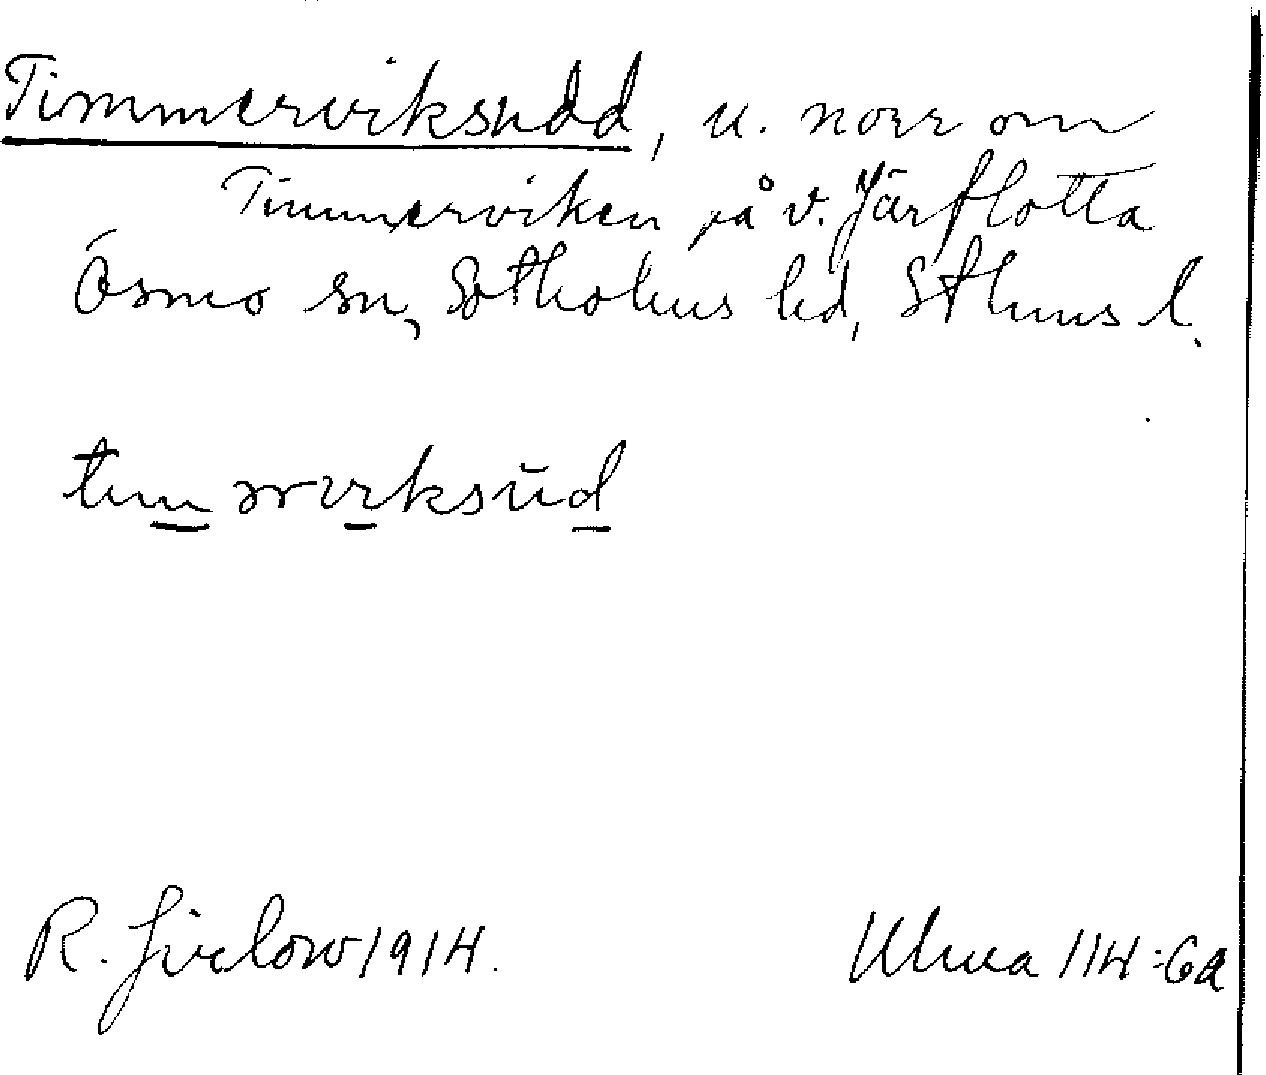 Timmerviksudd, u. norr om
Timmerviken på v. Järflotta
Ösmo sn, Sotholms hd, Sthms l.
R. Jirlow 1914.
Ulma 114:6a